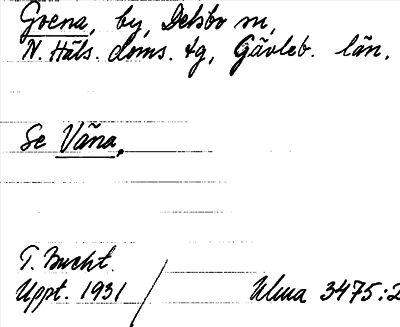 Grena, by, Delsbo sn,
N. Häls. doms. tg, Gävleb. län.
Se Väna,
T. Bucht.
Uppt. 1931 Ulma 3475:2